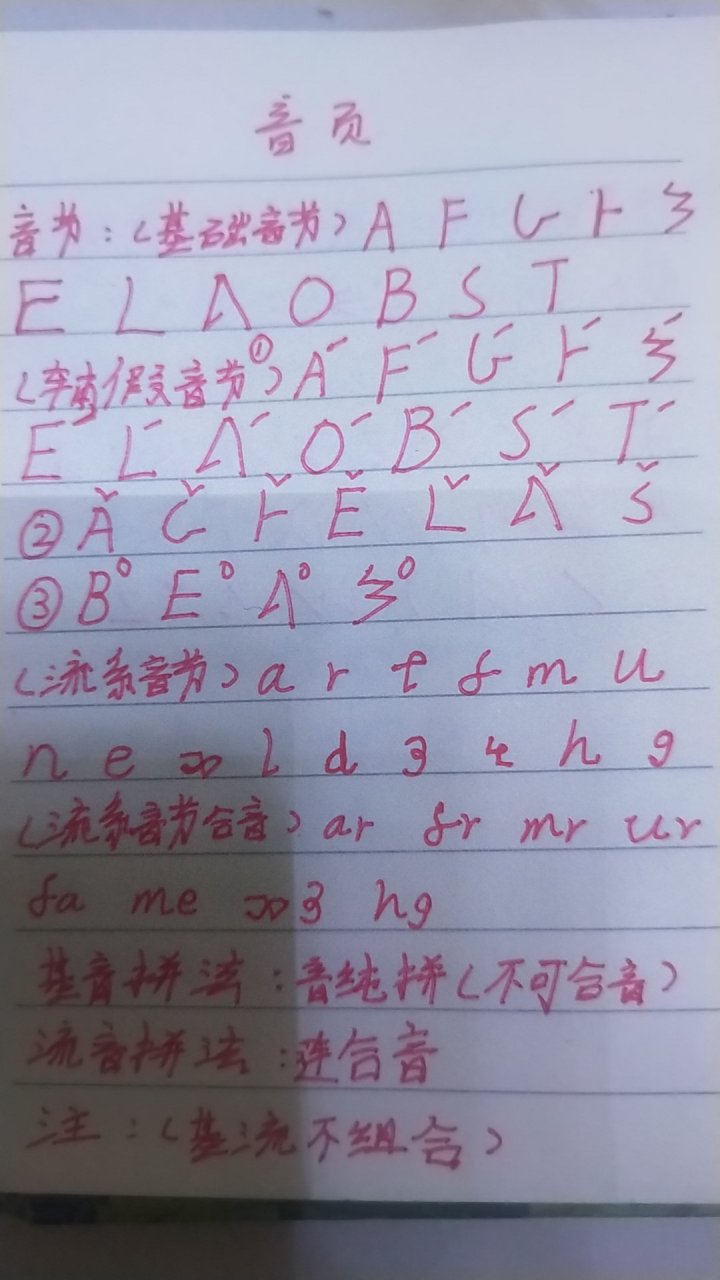 音页
音节:(基础音节) A F G Ͱ 子
E L Λ O B S T
音节①) A´ F´ G´ Ͱ´
E´ L´ Λ´ O´ B´ S´ T´
② Ǎ Č Ͱˇ Ě Lˇ Λˇ Š
③ B° E° Λ°
(流系音节) a r t f m u
n e ∞ l d 3 h g
(流系音节合音) ar fr mr ur
fa me ∞3 hg
基音拼法:音纯拼(不可合音)
流音拼法:连合音
注:(基流不组合)